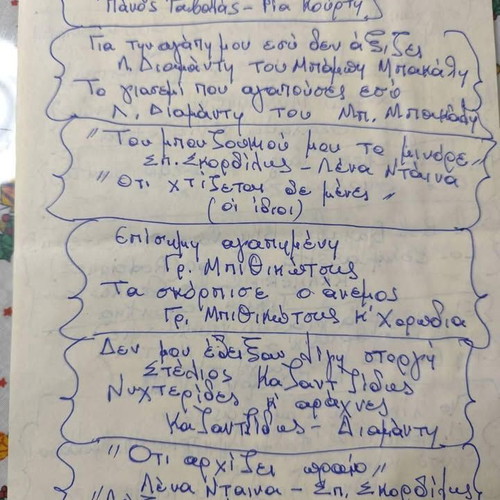 Πάνος Γαβαλάς - Ρία Κούρτη
Για την αγάπη μου εσύ δεν άξιζες
Λ. Διαμάντη του Μπάμπη Μπακάλη
Το γιασεμί που αγαπούσες εσύ
Λ. Διαμάντη του Μπ. Μπακάλη
"Του μπουζουκιού μου το μινόρε"
Σπ. Σκορδίλης - Λένα Ντάινα
"Ότι χτίζεται δε μένει"
(οι ίδιοι)
Επίσημη αγαπημένη
Γρ. Μπιθικώτσης
Τα σκόρπισε ο άνεμος
Γρ. Μπιθικώτσης κ' Χορωδία
Δέν μου έδειξαν λίγη στοργή
Στέλιος Καζαντζίδης
Νυχτερίδες κ' αράχνες
Καζαντζίδης - Διαμάντη
"Ότι αρχίζει ωραίο"
Λένα Ντάινα - Σπ. Σκορδίλης